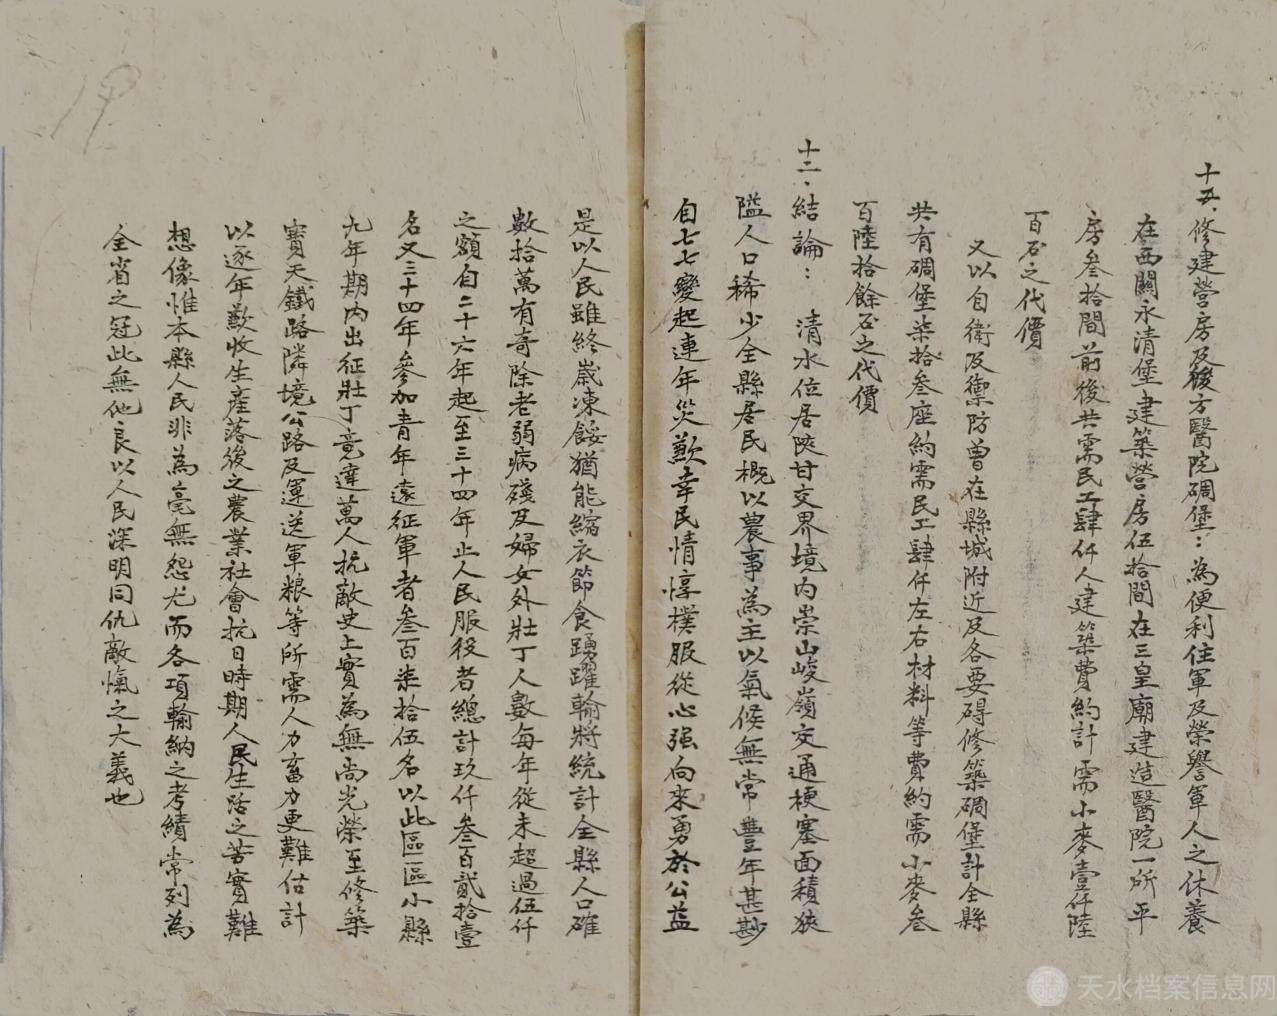 十五、修建營房及後方醫院碉堡：為便利住軍及榮譽軍人之休養
在西關永清堡建築營房伍拾間在三皇廟建造醫院一所平
房叁拾間前後共需民工肆仟人建築費約計需小麥壹仟陸
百石之代價
又以自衛及禦防曾在縣城附近及各要碍修築碉堡計全縣
共有碉堡柒拾叁座約需民工肆仟左右材料等費約需小麥叁
百陸拾餘石之代價
十二、結論：清水位居陝甘交界境內崇山峻嶺交通梗塞面積狹
隘人口稀少全縣居民概以農事為主以氣候無常豐年甚尠
自七七變起連年災歉幸民情惇樸服從心强向來勇於公益
是以人民雖終歲凍餒猶能縮衣節食踴躍輸將統計全縣人口確
數拾萬有奇除老弱病殘及婦女外壯丁人數每年從未超過伍仟
之額自二十六年起至三十四年止人民服役者總計玖仟叁百貳拾壹
名又三十四年參加青年遠征軍者叁百柒拾伍名以此區區小縣
九年期內出征壯丁竟達萬人抗敵史上實為無尚光榮至修築
寶天鐵路隣境公路及運送軍粮等所需人力畜力更難估計
以逐年歉收生產落後之農業社會抗日時期人民生活之苦實難
想像惟本縣人民非為毫無怨尤而各項輸納之考績常列為
全省之冠此無他良以人民深明同仇敵愾之大義也
天水档案信息网